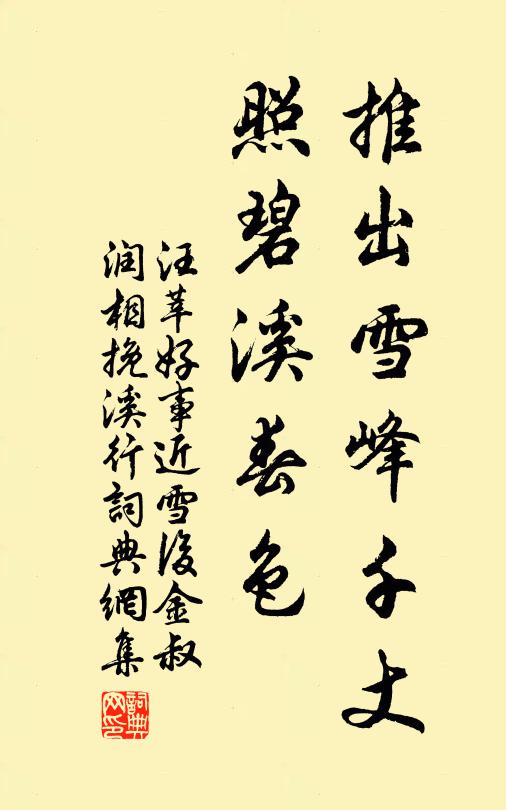 推出雪峰千丈
照碧溪春色
汪莘好事近雪後金叔
润相挽溪行詞典網集
詞典
网印